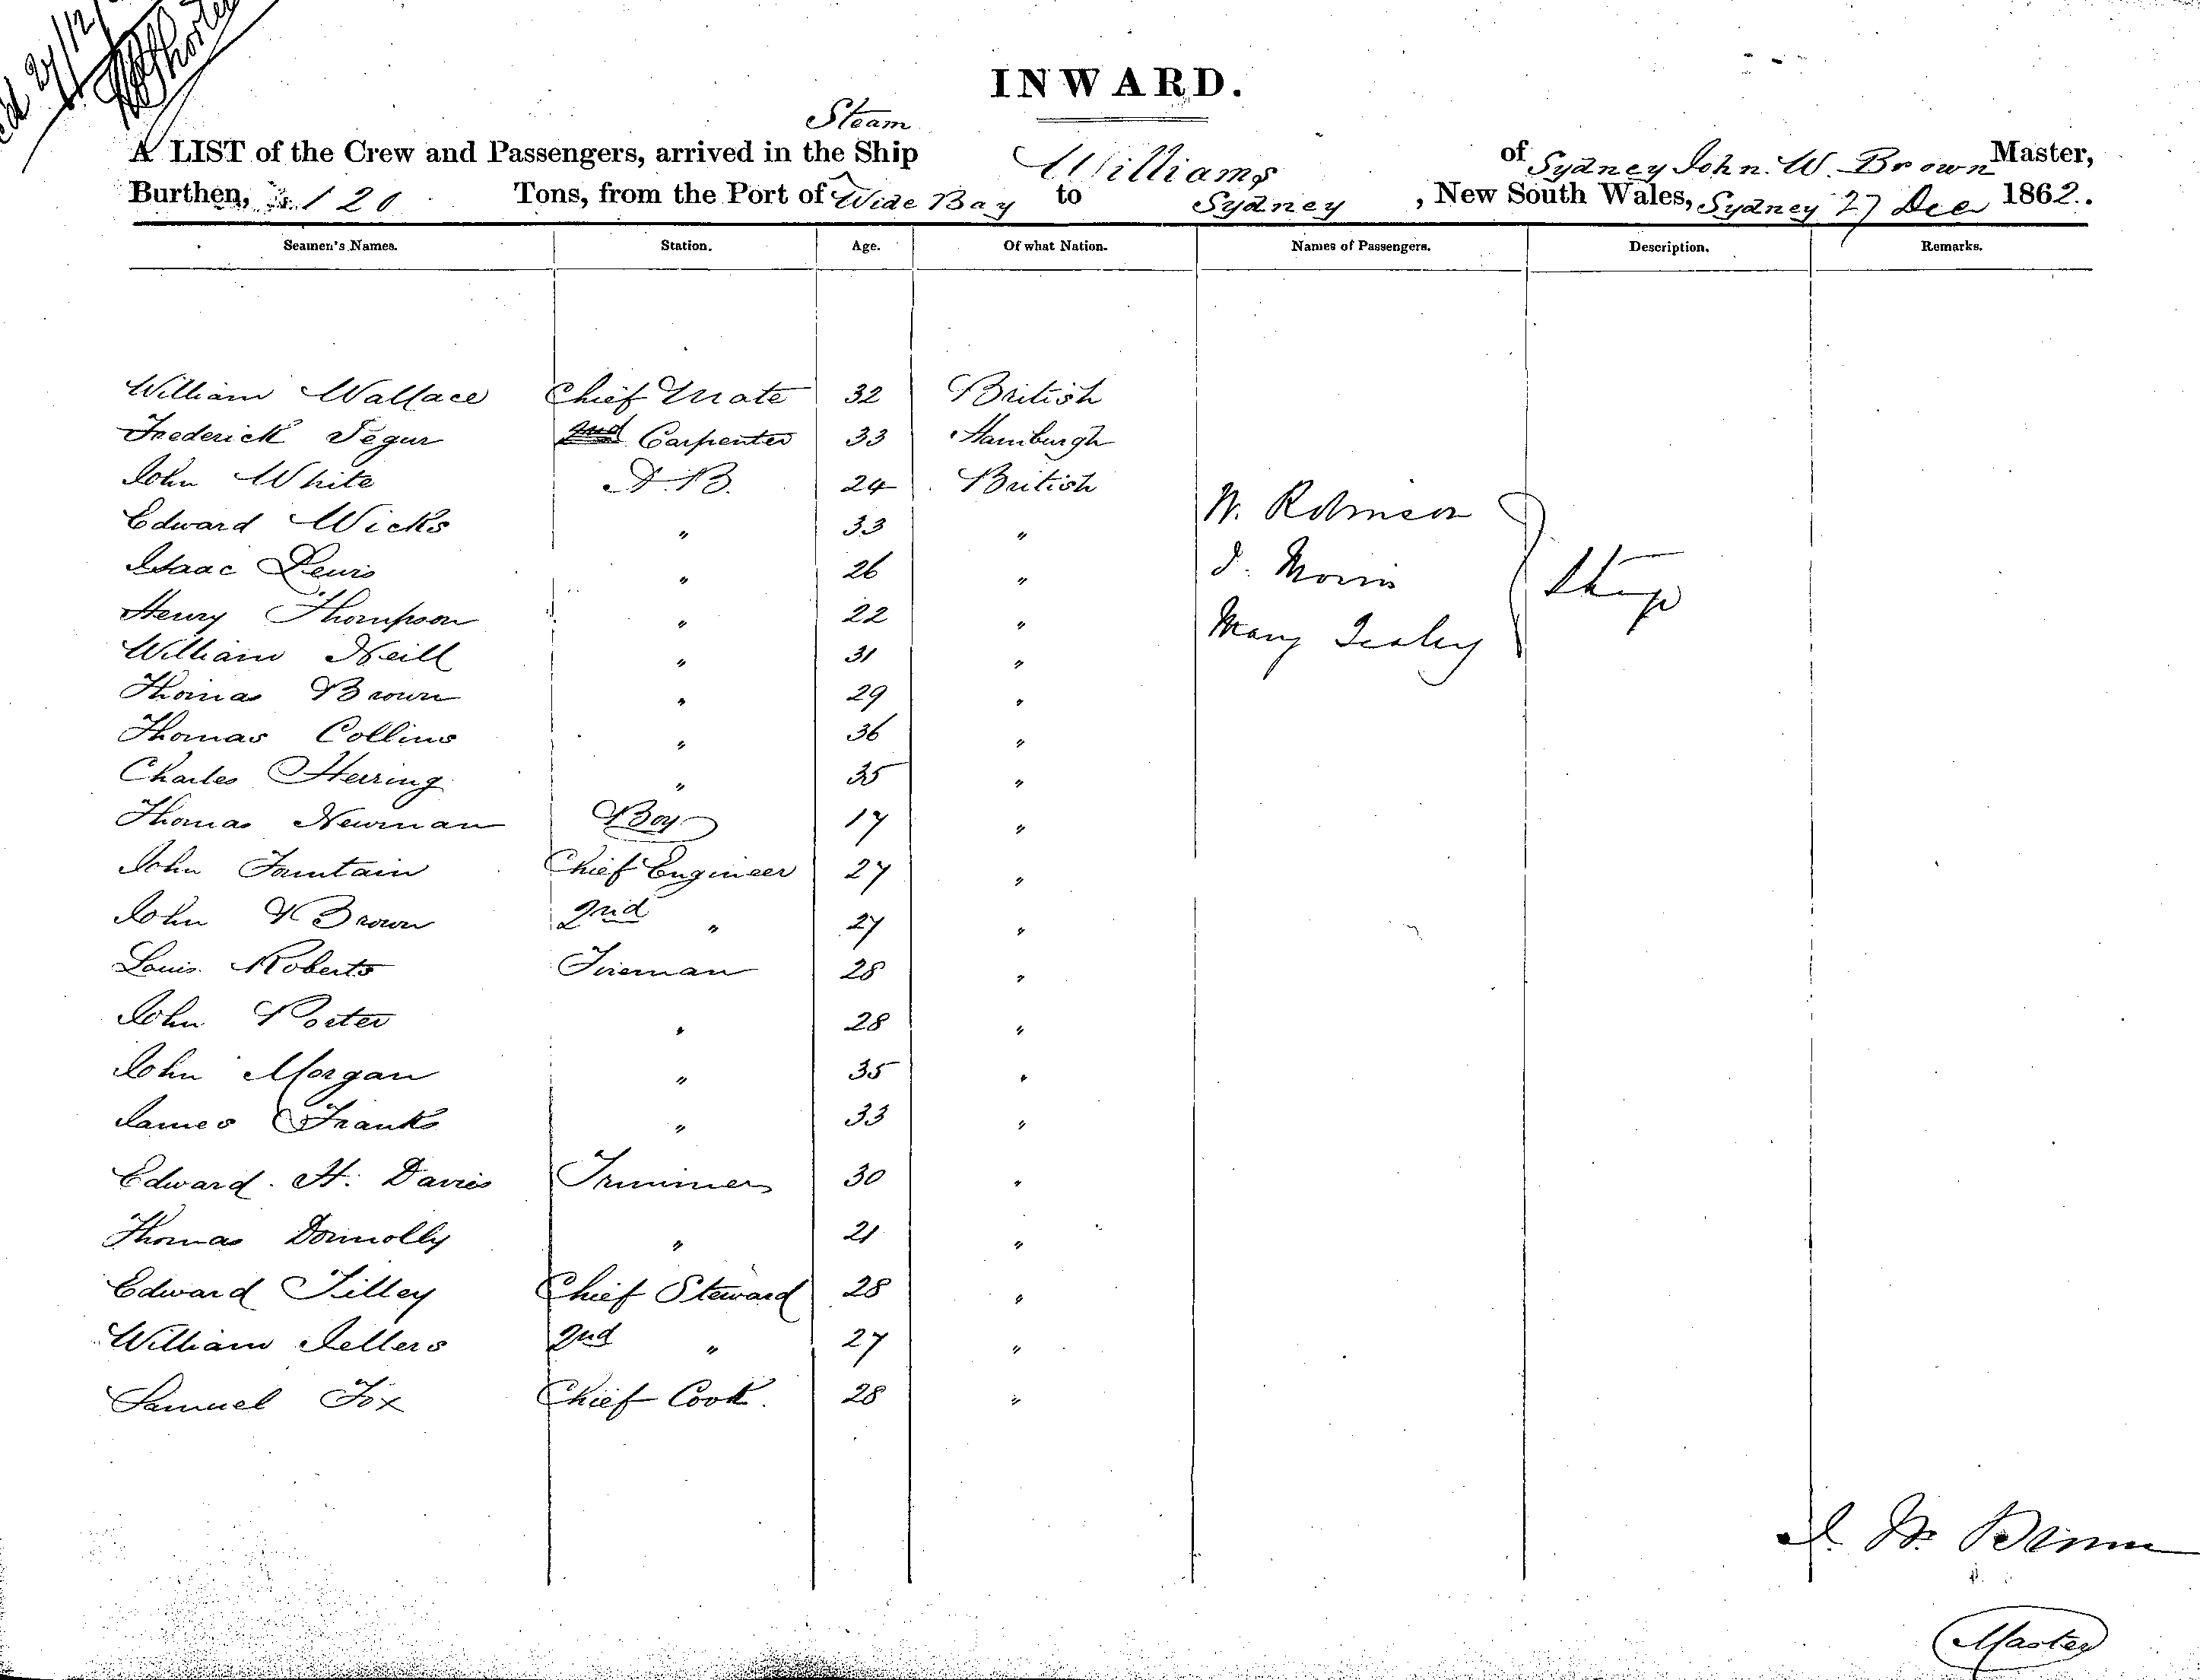 27/12/
INWARD.
Steam
A LIST of the Crew and Passengers, arrived in the Ship Williams of Sydney John. W. Brown Master,
Burthen, 120 Tons, from the Port of Wide Bay to Sydney, New South Wales, Sydney 27 Dec 1862.
Seamen's Names. Station. Age. Of what Nation. Names of Passengers. Description. Remarks.
William Wallace Chief Mate 32 British
Frederick Segur 2nd Carpenter 33 Hamburgh
John White A.B. 24 British
Edward Wicks " 33 " W. Robinson
Isaac Lewis " 26 " J. Morris
Henry Thompson " 22 "
William Neill " 31 " Mary
Thomas Brown " 29 "
Thomas Collins " 36 "
Charles Herring " 35 "
Thomas Newman Boy 17 "
John Fountain Chief Engineer 27 "
John Brown 2nd " 27 "
Louis Roberts Fireman 28 "
John Porter " 28 "
John Morgan " 35 "
James Franks " 33 "
Edward. H. Davies Trimmer 30 "
Thomas Donnolly " 21 "
Edward Tilley Chief Steward 28 "
William Jellers 2nd " 27 "
Samuel Fox Chief Cook. 28 "
J. W. Brown
Master